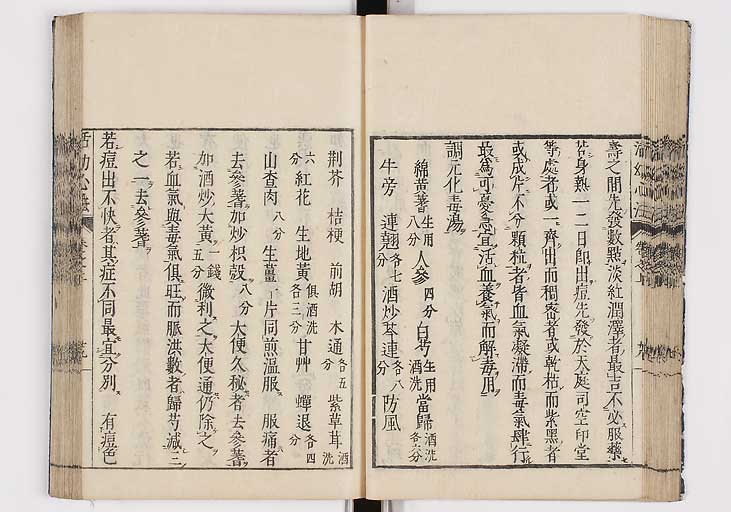 壽之間先發數點淡紅潤澤者最吉不必服藥
若身熱一二日即出痘先發於天庭司空印堂
等處者或一齊出而稠密者或乾枯而紫黑者
或成片不分顆粒者皆血氣凝滯而毒氣肆行
最為可憂急宜活血養氣而解毒用
調元化毒湯
綿黃蓍 生用八分 人參 四分 白芍 生用酒洗 當歸 酒洗各六分
牛旁 連翹 各七分 酒炒芩連 各八分 防風
荆芥 桔梗 前胡 木通 各五分 紫草茸 酒洗
六分 紅花 生地黃 俱酒洗各三分 甘艸 蟬退 各四分
山查肉 八分 生薑 一片同煎溫服 服痛者
去參蓍加炒枳殼 八分 大便久秘者去參蓍
加酒炒大黃 一錢五分 微利之大便通仍除之
若血氣與毒氣俱旺而脈洪數者歸芍減三
之一去參蓍
若痘出不快者其症不同最宜分別 有痘色
活幼心法